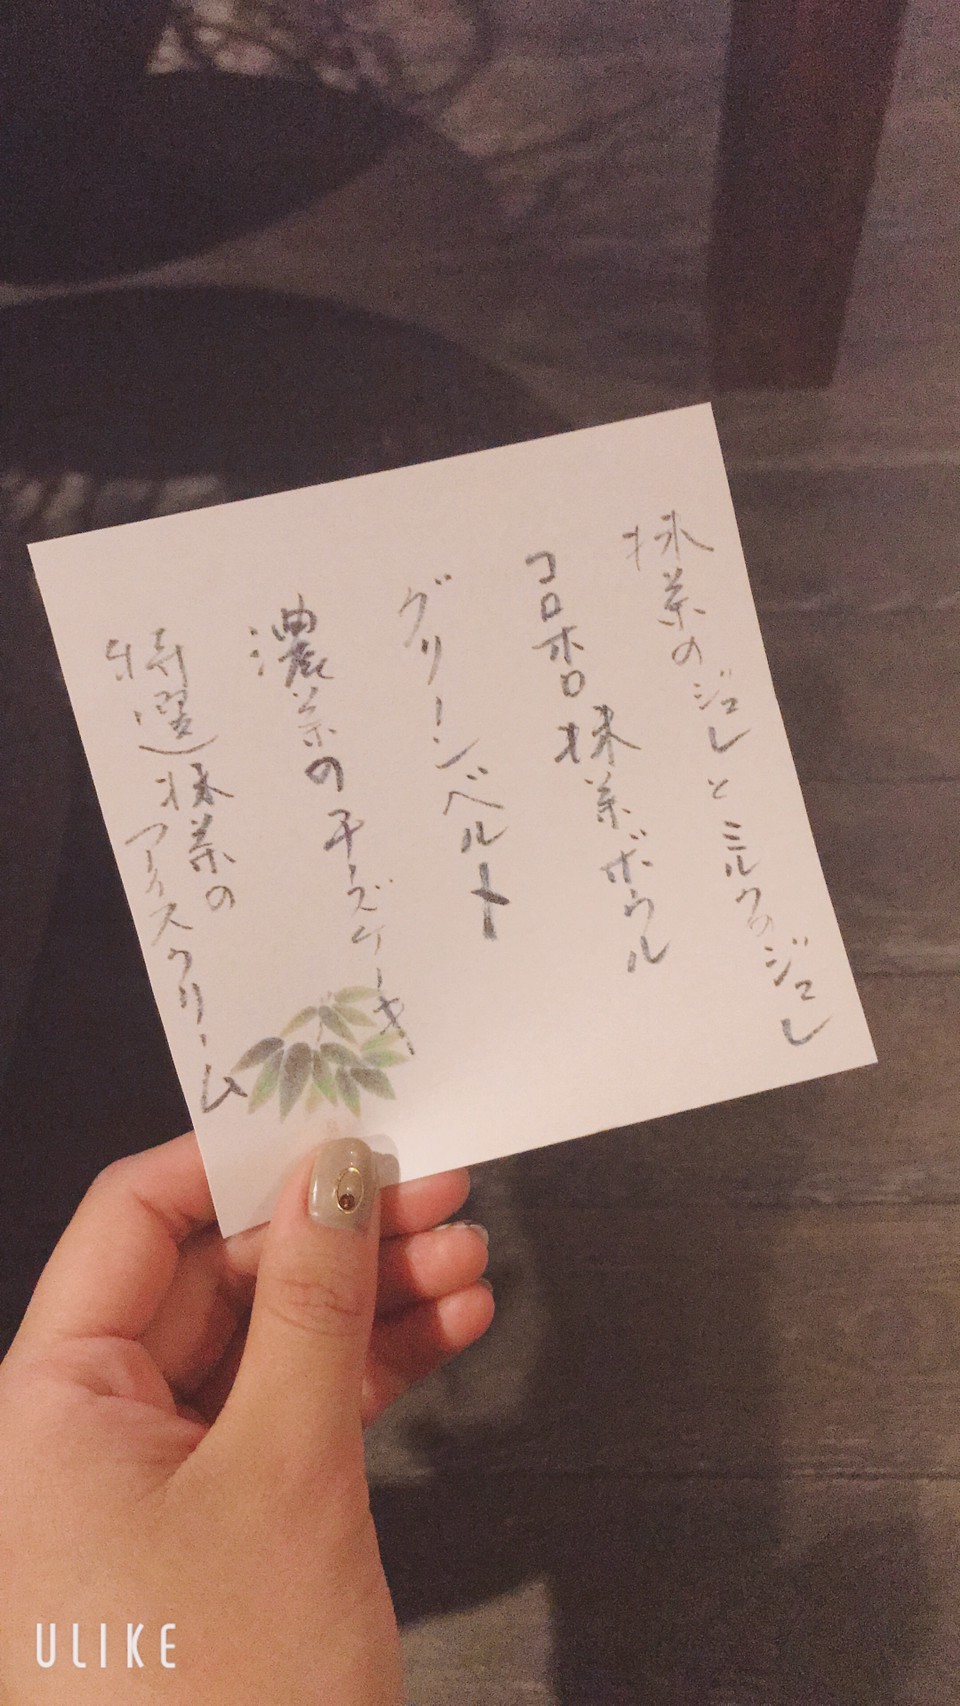 抹茶のジュレとミルクのジュレ
コロホロ抹茶ボウル
グリーンベルト
濃茶のチーズケーキ
特選抹茶の
アイスクリーム
ULIKE